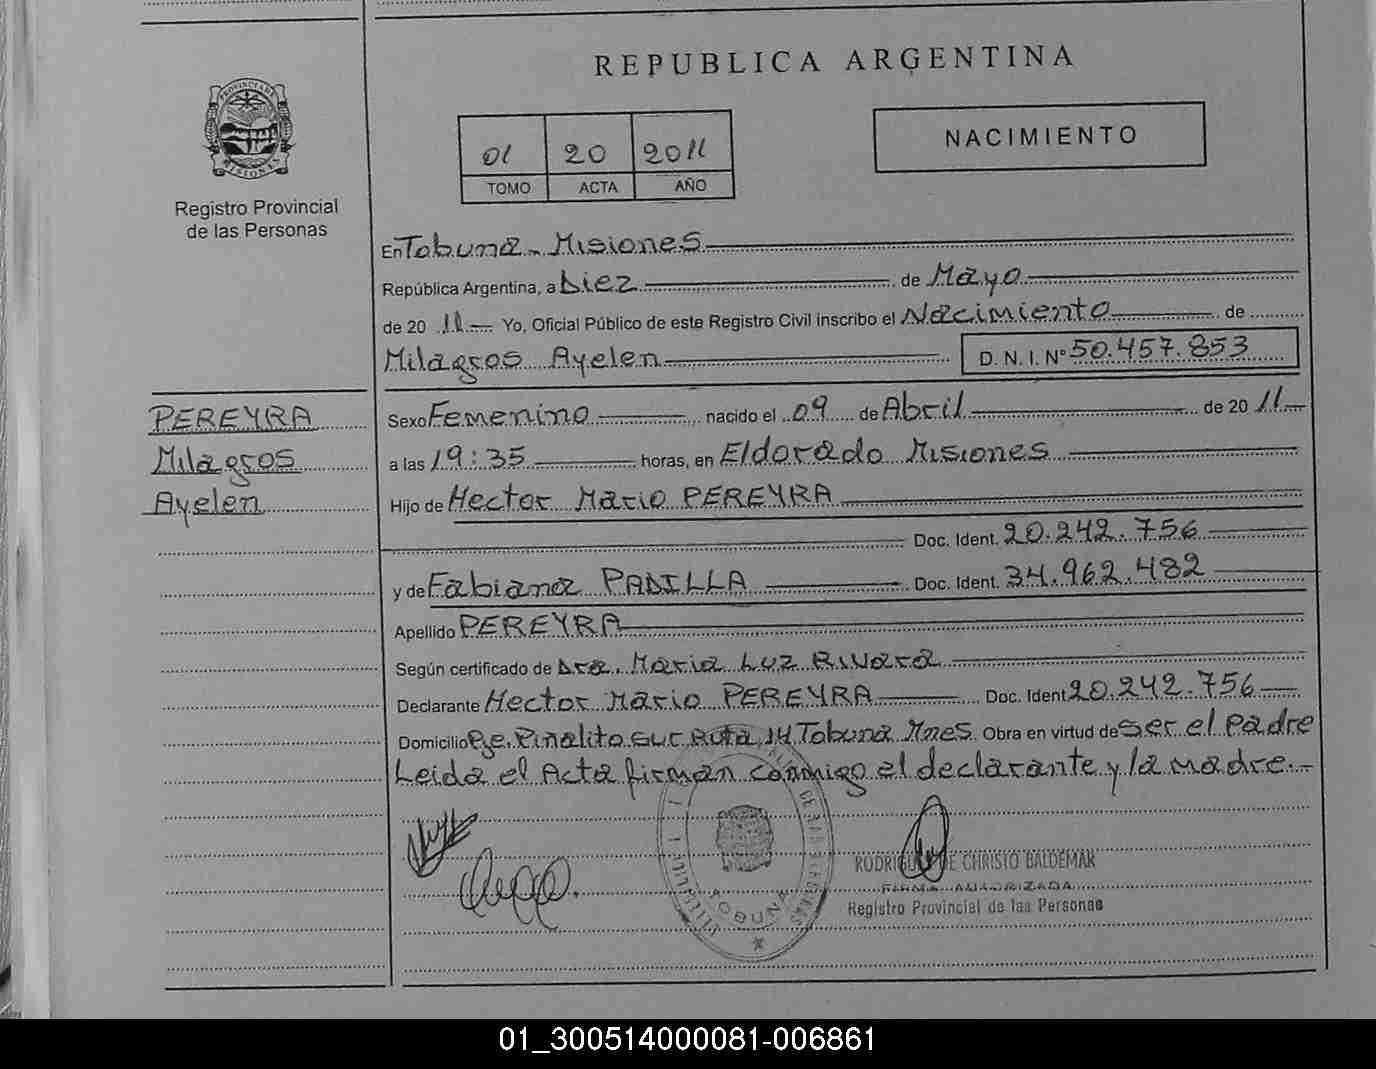 REPUBLICA ARGENTINA
PROVINCIA DE
MISIONES
Registro Provincial
de las Personas
01 20 2011
TOMO ACTA AÑO
NACIMIENTO
En Tobuna - Misiones
República Argentina, a Diez de Mayo
de 20 11 Yo, Oficial Público de este Registro Civil inscribo el Nacimiento de
Milagros Ayelen D. N. I. Nº 50.457.853
PEREYRA
Milagros
Ayelen
Sexo Femenino nacido el 09 de Abril de 20 11
a las 19:35 horas, en Eldorado Misiones
Hijo de Hector Mario PEREYRA
Doc. Ident. 20.242.756
y de Fabiana PADILLA Doc. Ident. 34.962.482
Apellido PEREYRA
Según certificado de Dra. Maria Luz Rivara
Declarante Hector Mario PEREYRA Doc. Ident 20.242.756
Domicilio Pje. Piñalito sur Ruta 14 Tobuna Mnes. Obra en virtud de ser el Padre
Leida el Acta firman conmigo el declarante y la madre.-
DE CHRISTO BALDEMAR
FIRMA AUTORIZADA
Registro Provincial de las Personas
01_300514000081-006861